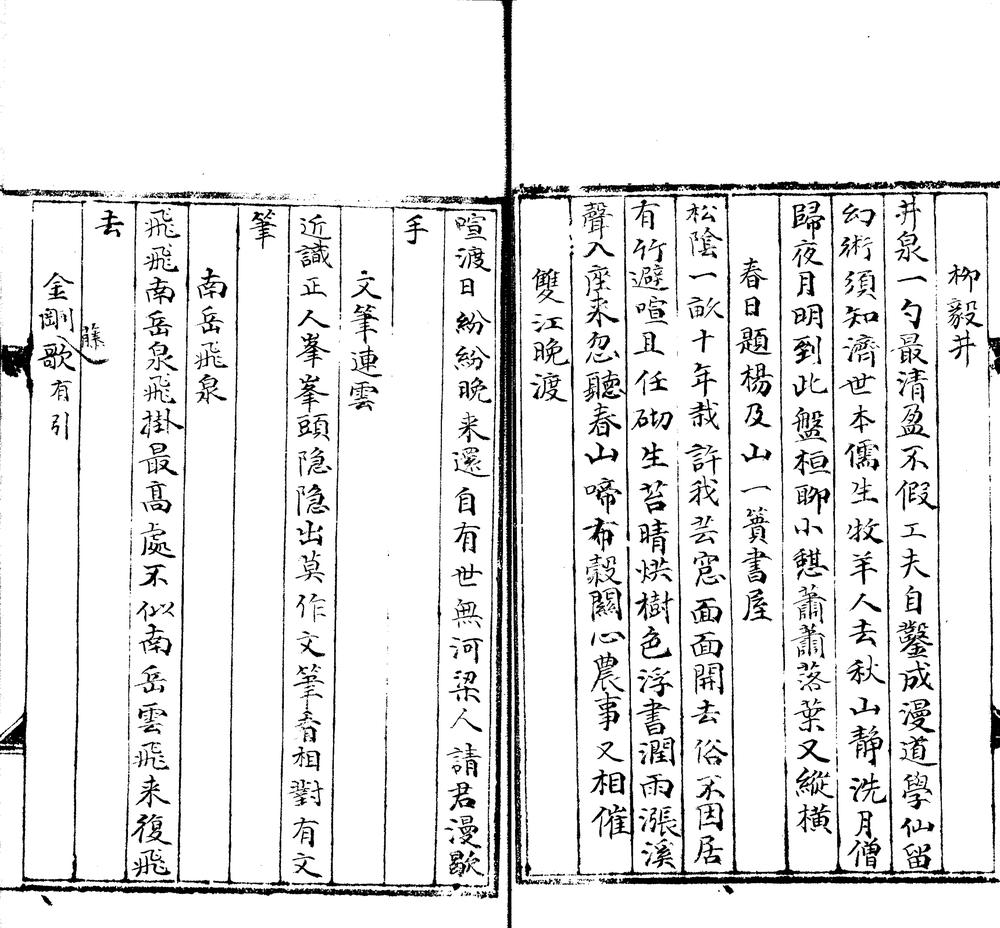 柳毅井
井泉一勺最清盈不假工夫自鑿成漫道學仙留
幻術須知濟世本儒生牧羊人去秋山靜洗月僧
歸夜月明到此盤桓聊小憩蕭蕭落葉又縱橫
春日題楊及山一簣書屋
松陰一畝十年哉許我芸窓面面開去俗不因居
有竹避喧且任砌生苔晴烘樹色浮書潤雨漲溪
聲入座来忽聽春山啼布穀關心農事又相催
雙江晚渡
喧渡日紛紛晚来還自有世無河梁人請君漫歇
手
文筆連雲
近識正人峯峯頭隐隐出莫作文筆看相對有文
筆
南岳飛泉
飛飛南岳泉飛掛最高處不似南岳雲飛来復飛
去
金剛藤歌有引